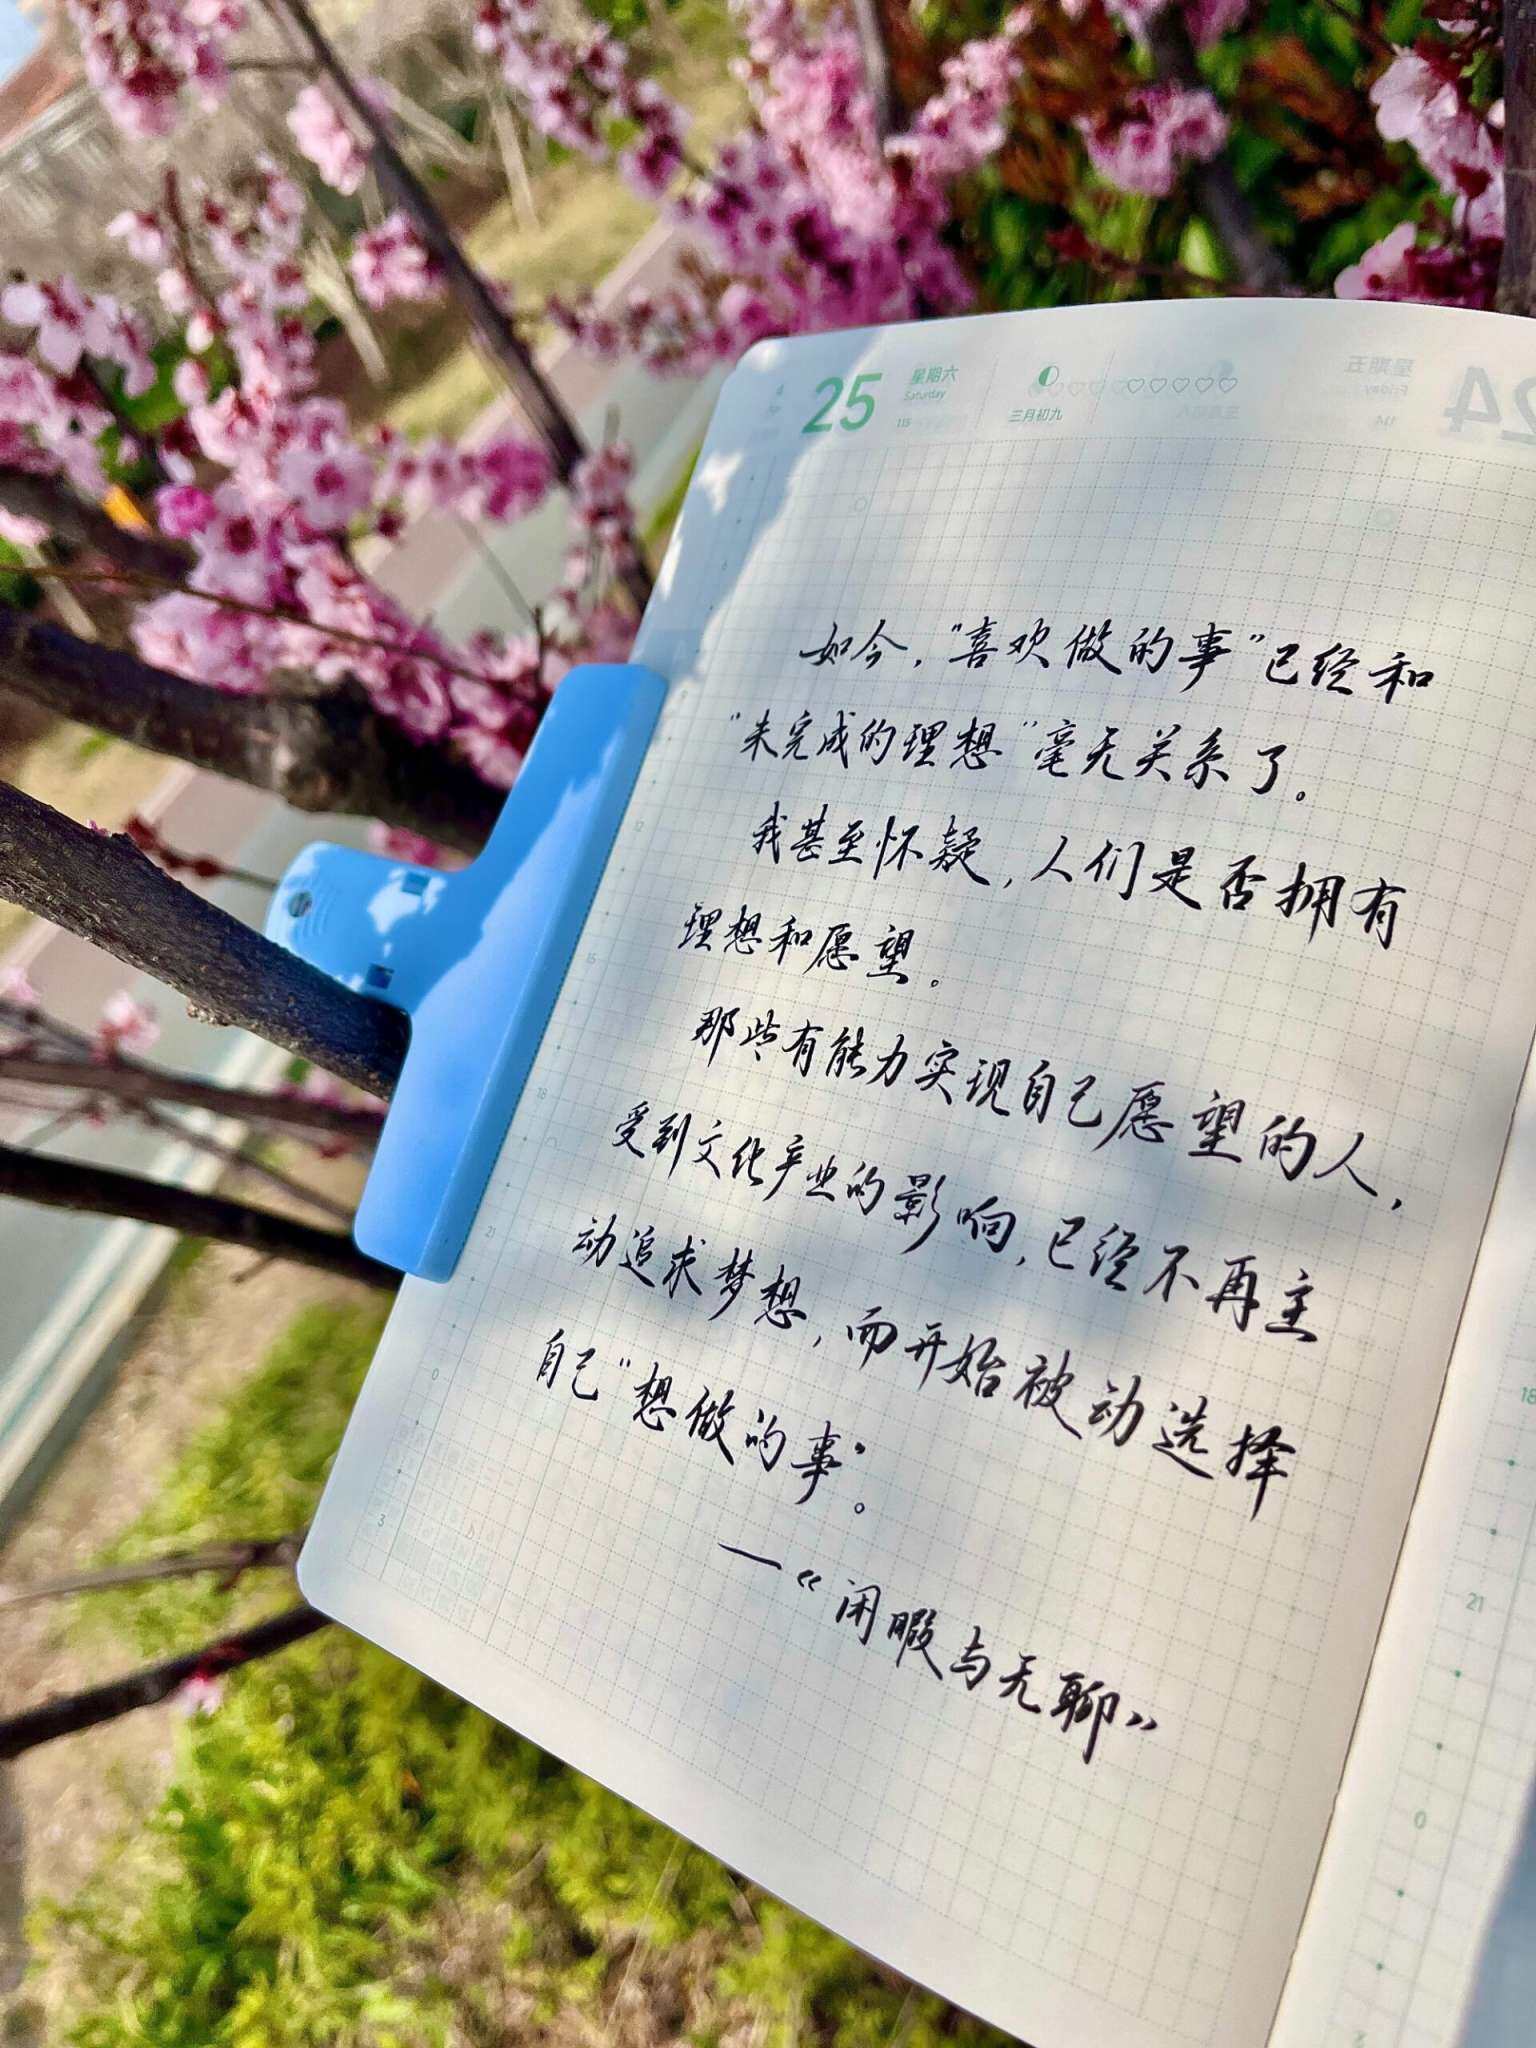 25 星期六
Saturday
115
三月初九
24
星期五
Friday
114
如今，“喜欢做的事”已经和
“未完成的理想”毫无关系了。
我甚至怀疑，人们是否拥有
理想和愿望。
那些有能力实现自己愿望的人，
受到文化产业的影响，已经不再主
动追求梦想，而开始被动选择
自己“想做的事”。
—《闲暇与无聊》
12
15
18
21
0
3
18
21
0